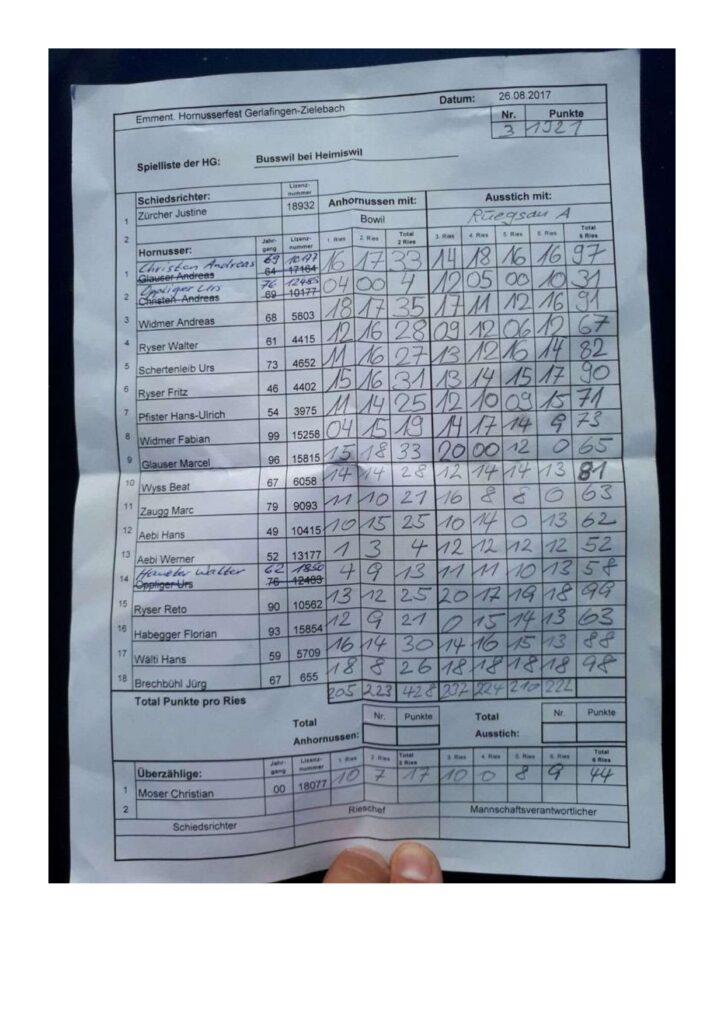 Emment. Hornusserfest Gerlafingen-Zielebach Datum: 26.08.2017
Nr. Punkte
3 1321
Spielliste der HG: Busswil bei Heimiswil
Schiedsrichter: Lizenz-nummer Anhornussen mit: Ausstich mit:
1 Zürcher Justine 18932 Bowil Rüegsau A
2
Hornusser: Jahr-gang Lizenz-nummer 1. Ries 2. Ries Total 2 Ries 3. Ries 4. Ries 5. Ries 6. Ries Total 6 Ries
Christen Andreas 69 10177
1 Glauser Andreas 64 17164 16 17 33 14 18 16 16 97
Oppliger Urs 76 12483
2 Christen Andreas 69 10177 04 00 4 12 05 00 10 31
3 Widmer Andreas 68 5803 18 17 35 17 11 12 16 91
4 Ryser Walter 61 4415 12 16 28 09 12 06 12 67
5 Schertenleib Urs 73 4652 11 16 27 13 12 16 14 82
6 Ryser Fritz 46 4402 15 16 31 13 14 15 17 90
7 Pfister Hans-Ulrich 54 3975 11 14 25 12 10 09 15 71
8 Widmer Fabian 99 15258 04 15 19 14 17 14 9 73
9 Glauser Marcel 96 15815 15 18 33 20 00 12 0 65
10 Wyss Beat 67 6058 14 14 28 12 14 14 13 81
11 Zaugg Marc 79 9093 11 10 21 16 8 8 0 63
12 Aebi Hans 49 10415 10 15 25 10 14 0 13 62
13 Aebi Werner 52 13177 1 3 4 12 12 12 12 52
Walter 62 1850
14 Oppliger Urs 76 12483 4 9 13 11 11 10 13 58
15 Ryser Reto 90 10562 13 12 25 20 17 19 18 99
16 Habegger Florian 93 15854 12 9 21 0 15 14 13 63
17 Wälti Hans 59 5709 16 14 30 14 16 15 13 88
18 Brechbühl Jürg 67 655 18 8 26 18 18 18 18 98
Total Punkte pro Ries 205 223 428 237 224 210 222
Total Anhornussen: Nr. Punkte Total Ausstich: Nr. Punkte
Überzählige: Jahr-gang Lizenz-nummer 1. Ries 2. Ries Total 2 Ries 3. Ries 4. Ries 5. Ries 6. Ries Total 6 Ries
1 Moser Christian 00 18077 10 7 17 10 0 8 9 44
2
Schiedsrichter Rieschef Mannschaftsverantwortlicher